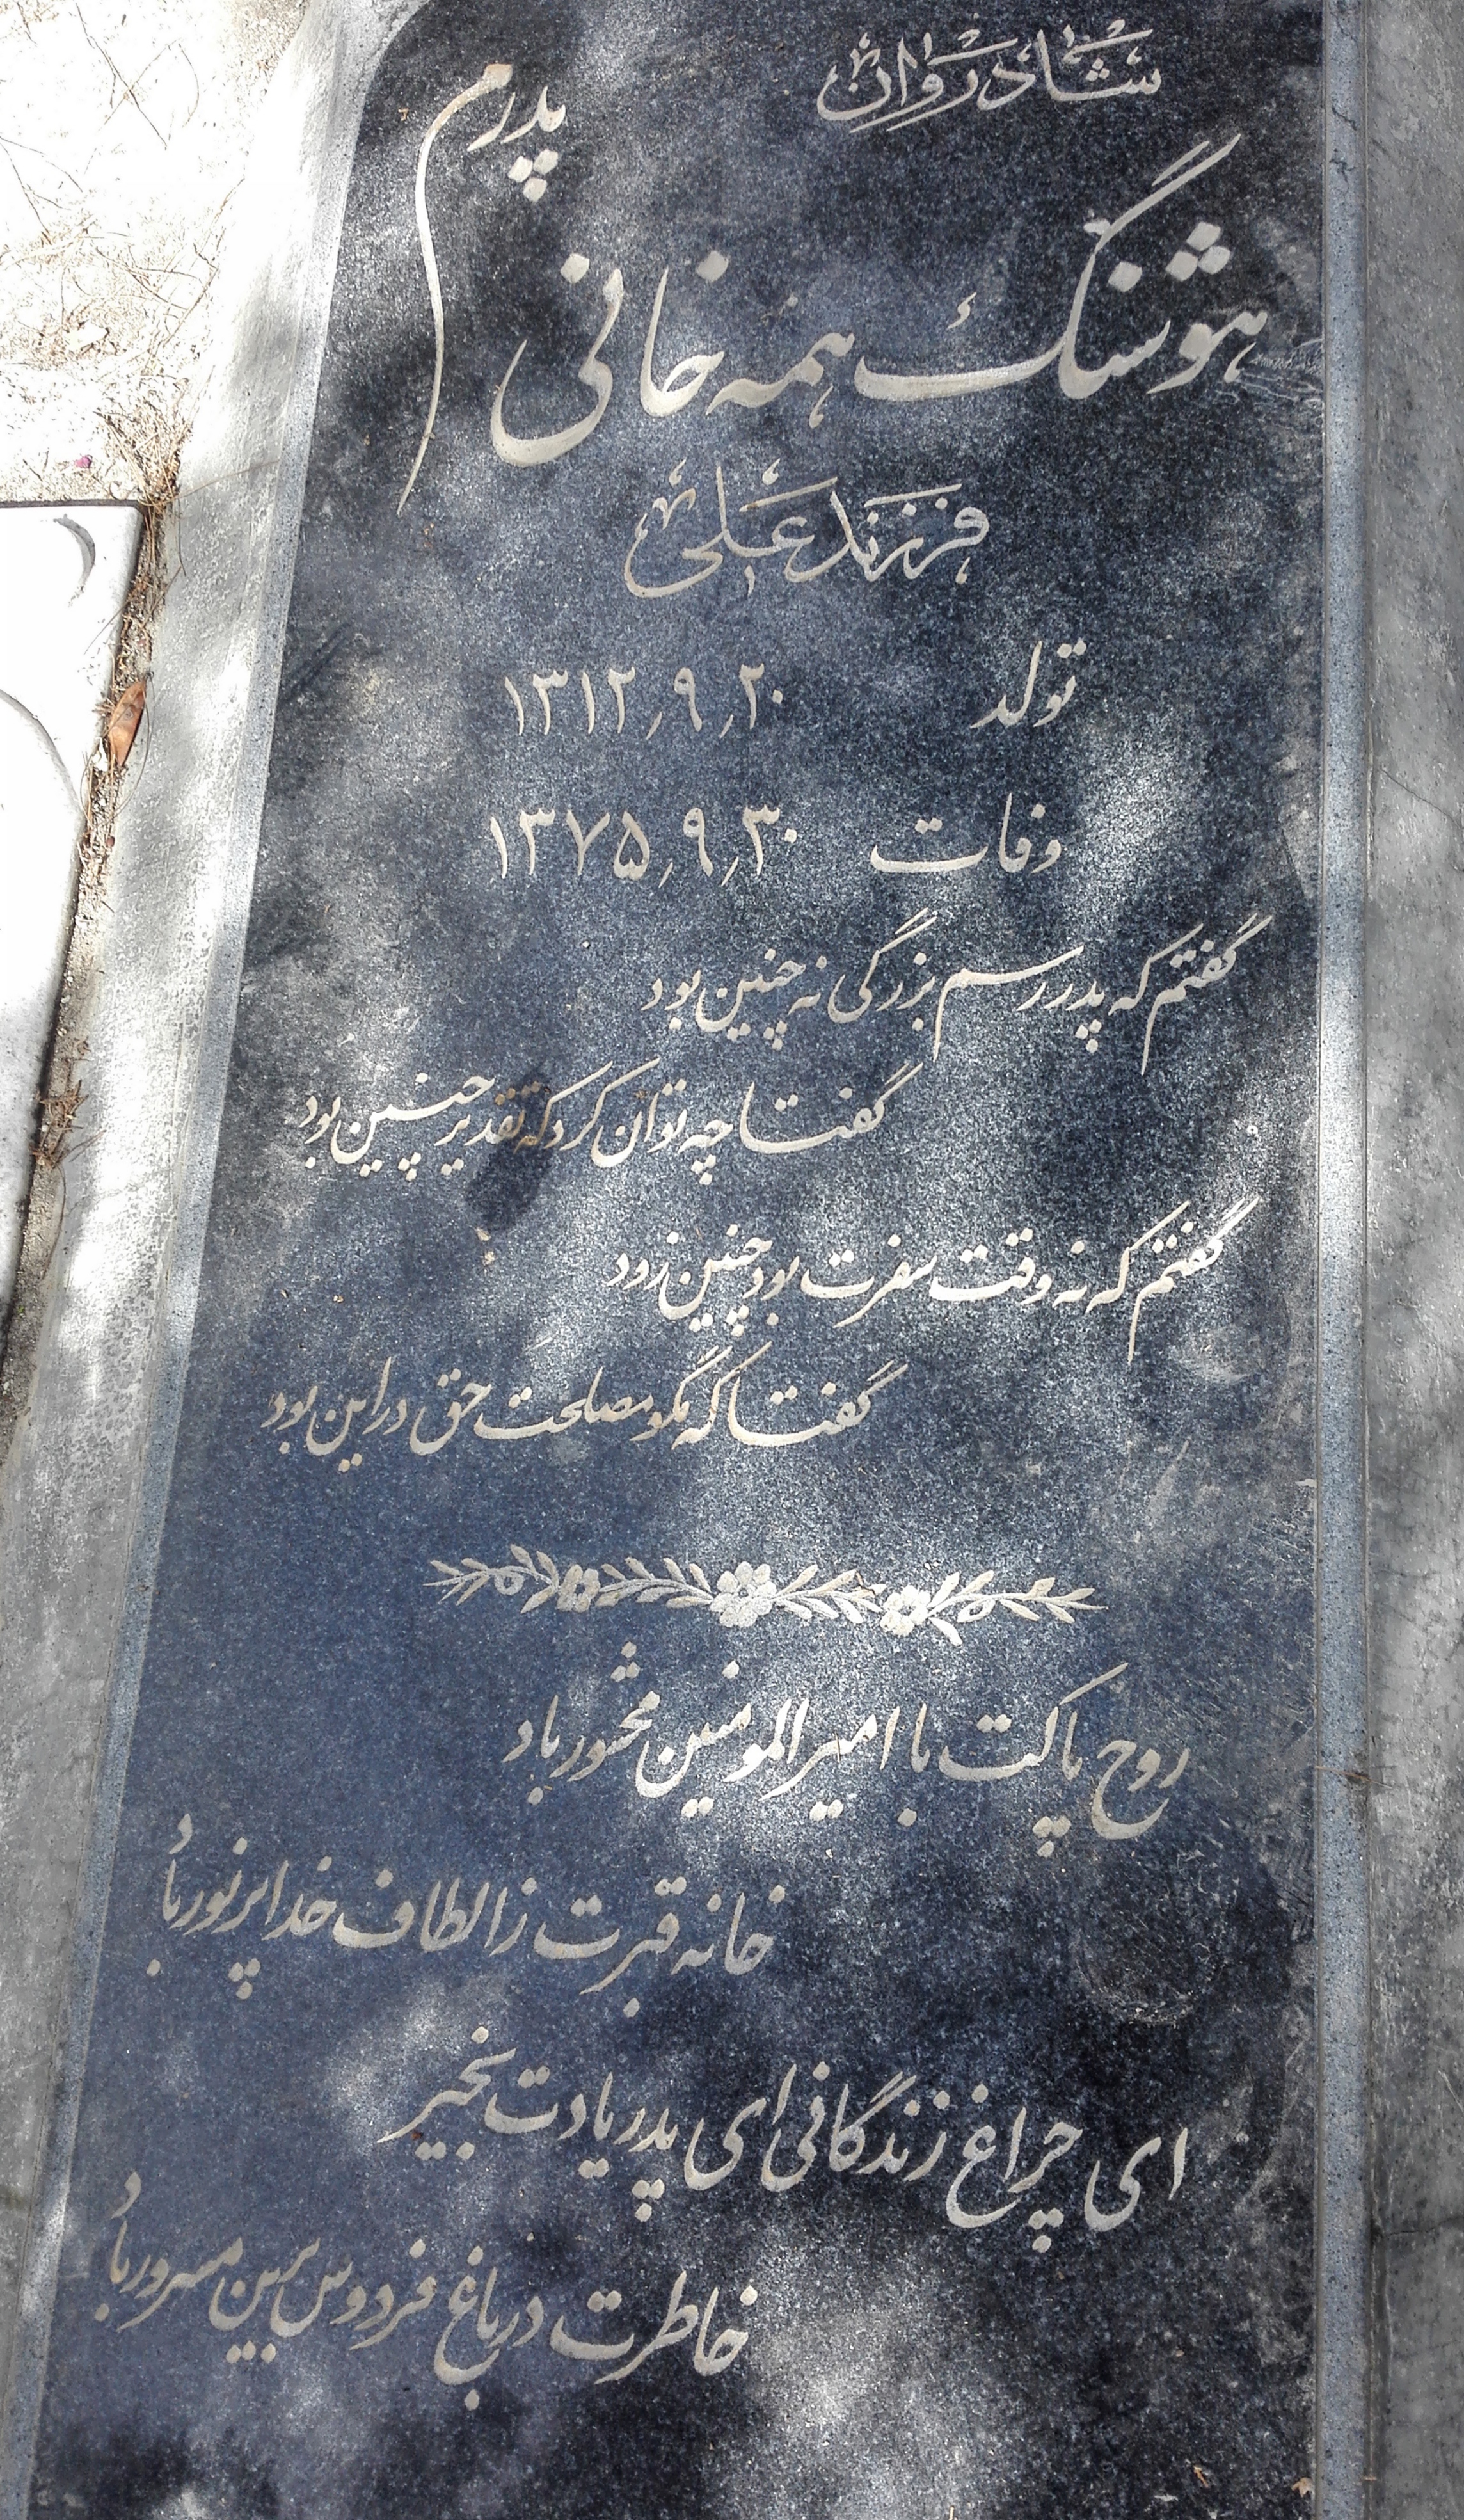 شادروان
پدرم
هوشنگ همه خانی
فرزند علی
تولد ۱۳۱۲٫۹٫۲۰
وفات ۱۳۷۵٫۹٫۳۰
گفتم که پدر رسم بزرگی نه چنین بود
گفتا چه توان کرد که تقدیر چنین بود
گفتم که نه وقت سفرت بود چنین زود
گفتا که مگو مصلحت حق در این بود
روح پاکت با امیرالمومنین محشور باد
خانه قبرت ز الطاف خدا پرنور باد
ای چراغ زندگانی ای پدر یادت بخیر
خاطرت در باغ فردوس برین مسرور باد